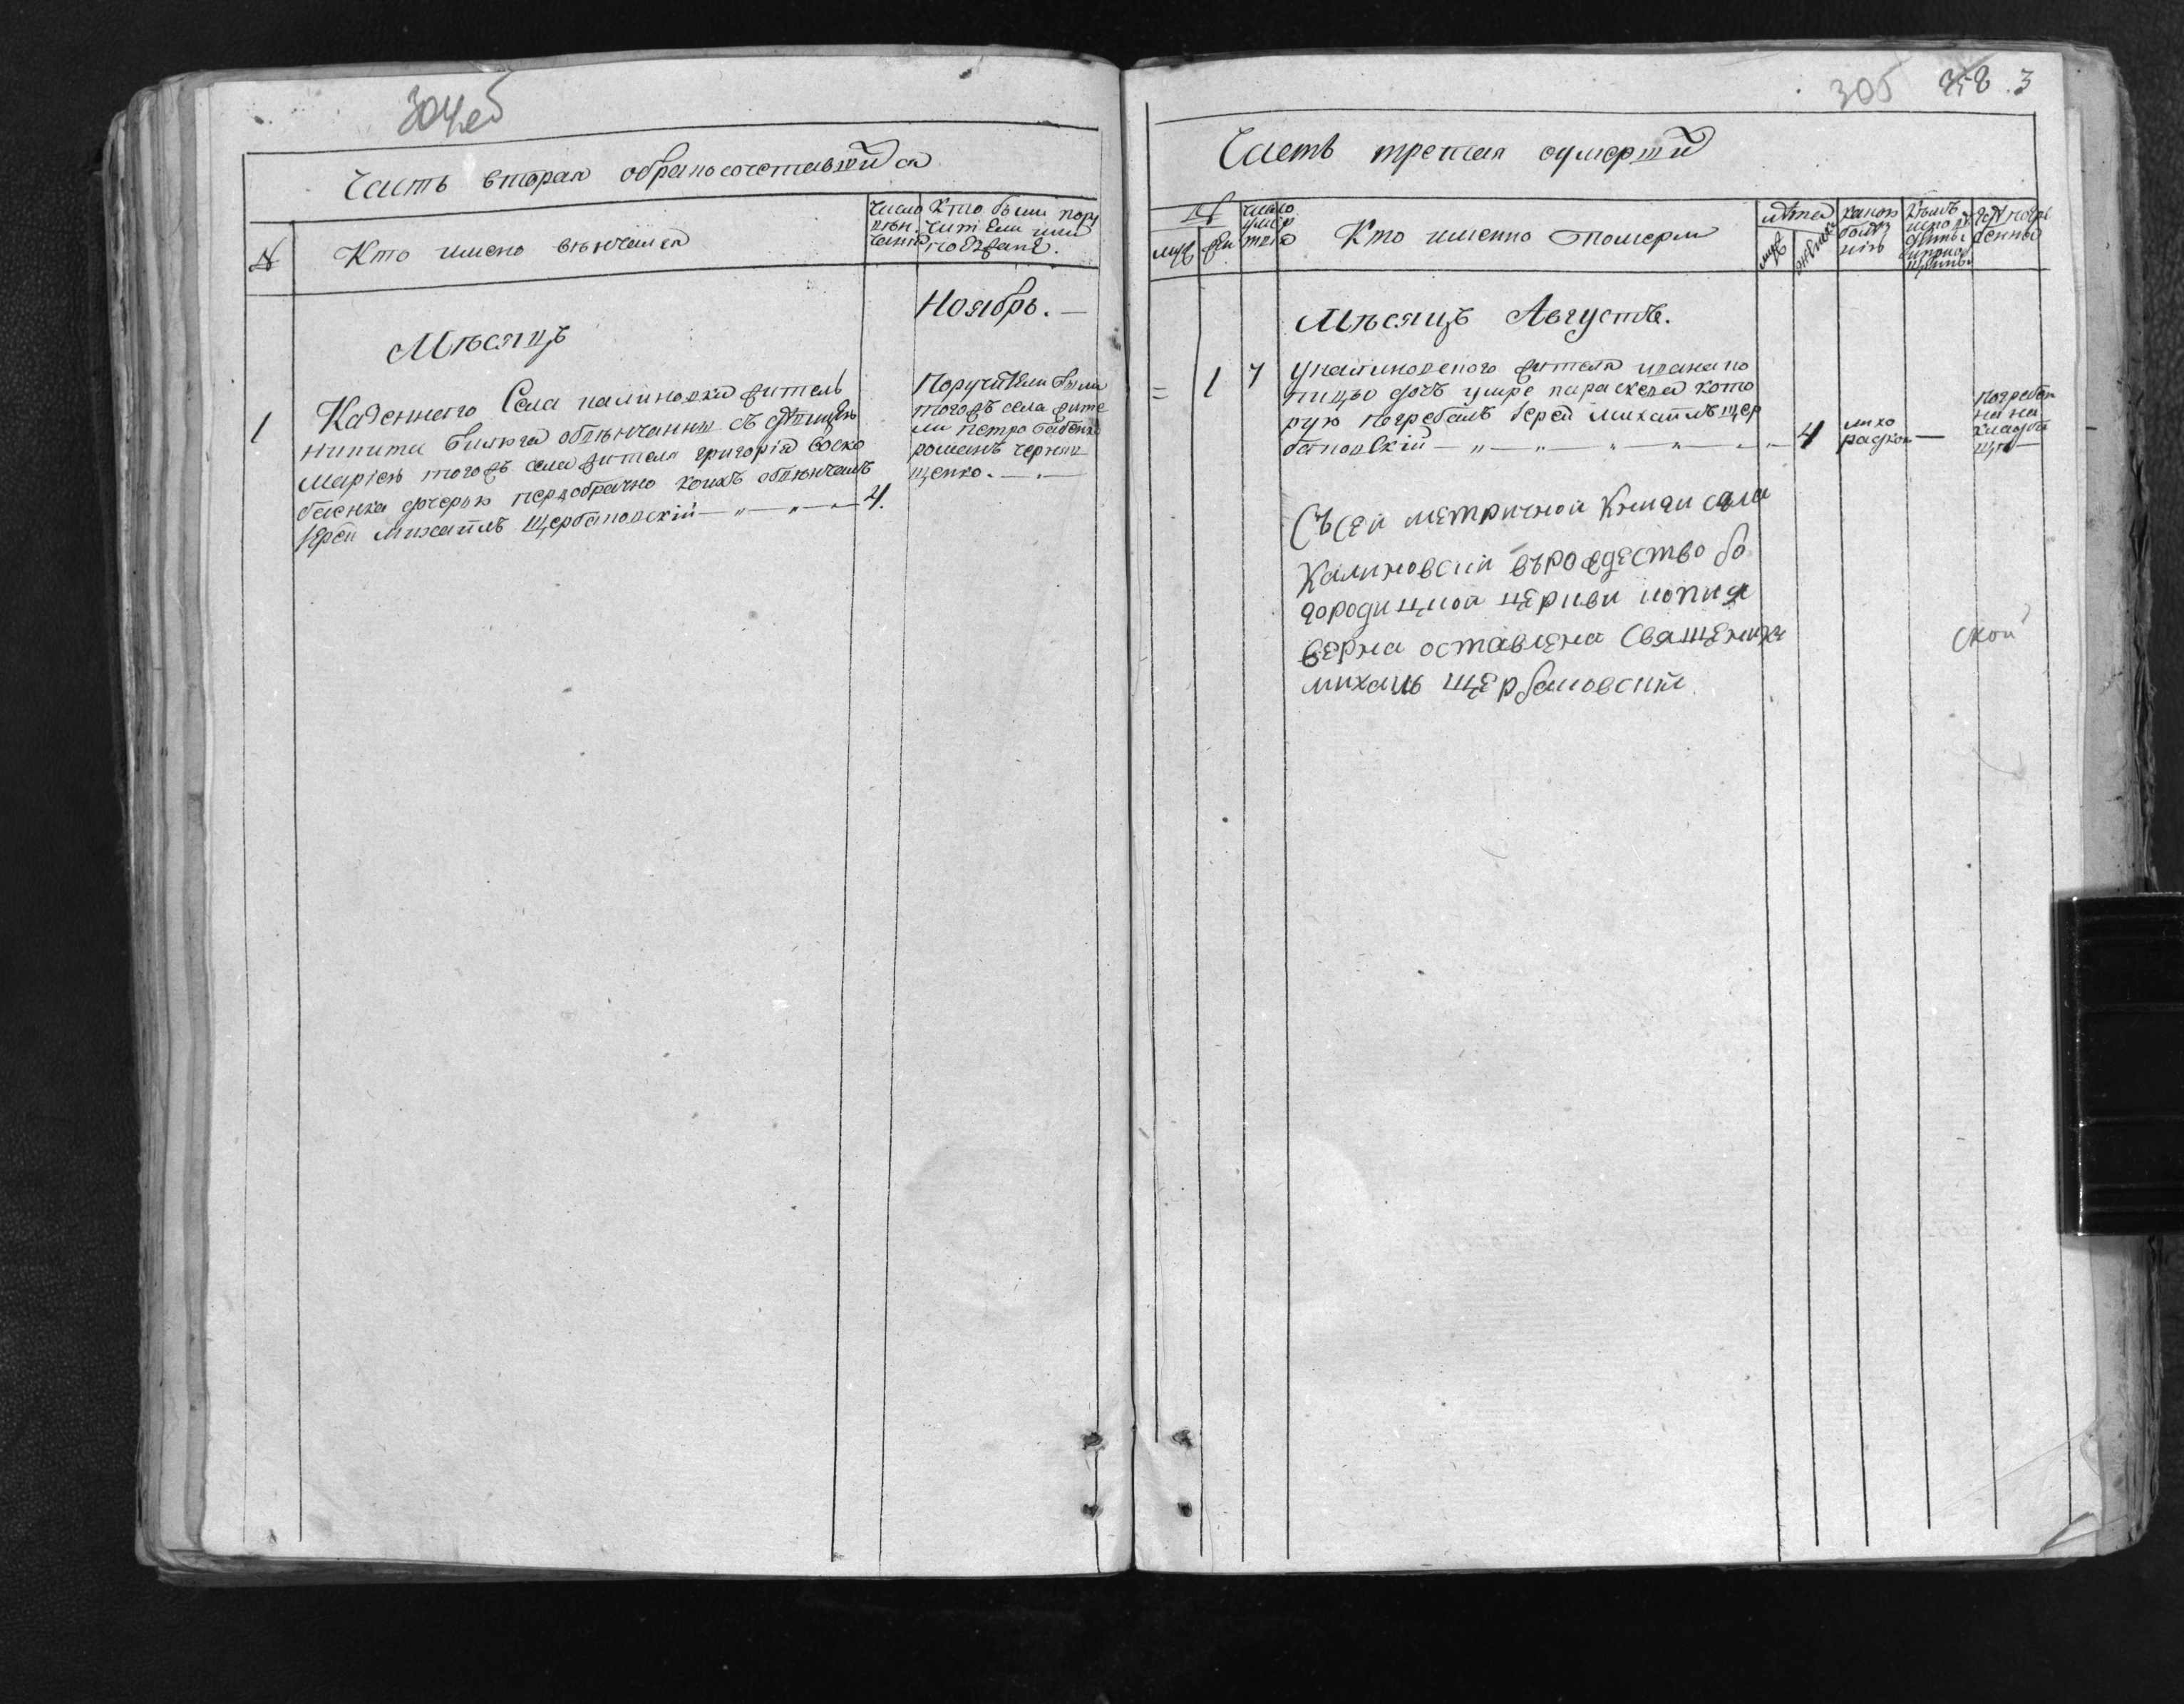 304об
Часть вторая обраносочетавшийся
№
Кто имено венчался
Число венчания
Кто были поручители или поезжане.
Мѣсяцъ
Ноябрь. —
1
Казенного Села калиновки житель
никита обвѣнчанный съ девицею
мариею тогожъ села жителя григория Соско
баенка дочерью первобрачно коихъ обвѣнчалъ
Иерей михаилъ Щербановский — „ — „ — 4.
Поручители были
тогожъ села жите
ли петро бабенко
романъ черныш
щенко. — . —
305 3
Часть третая оумерший
№
муж
жен
число умертвия
Кто именно померли
лѣта
муж
женск
какою болѣзнию
Кѣмъ исповѣданы и приобщены
Где погребенны
Мѣсяцъ Августъ.
= 1 7
У калиновского жителя ивана по
дочь умре параскева кото
рую погребалъ Иерей михаилъ щер
бановский — „ — „ — „ — „ — 4
лихо
радкою —
погребен
на на
кладби
щи —
Съ сей метричной книги села
Калиновский въ рождество бо
городичной церкви копия
верна оставлена Священикъ
михаиль щербановский
ской